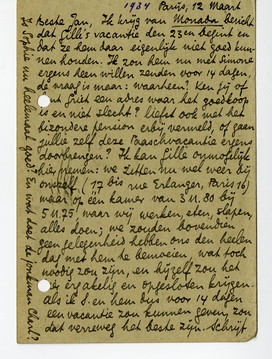 1934 Parijs, 12 Maart
Beste Jan, Ik krijg van Monaba bericht
dat Gille's vacantie den 23en begint en
dat ze hem daar eigenlijk niet goed kun-
nen houden. Ik zou hem nu met Simone
ergens heen willen zenden voor 14 dagen,
de vraag is maar: waarheen? Ken jij of
kent Griet een adres waar het goedkoop
is en niet slecht? liefst ook met het
bizondere pension erbij vermeld, of gaan
jullie zelf deze Paaschvacantie ergens
doorbrengen? Ik kan Gille onmogelijk
hier nemen: we zitten nu wel weer bij
onszelf (17 bis rue Erlanger, Paris 16)
maar op één kamer van 3 M. 80 bij
5 M. 75, waar wij werken, eten, slapen,
alles doen; we zouden bovendien
geen gelegenheid hebben ons den heelen
dag met hem te bemoeien, wat toch
noodig zou zijn, en hijzelf zou het
erg akelig en opgesloten krijgen.
Als ik S. en hem dus voor 14 dagen
een vacantie zou kunnen geven, zou
dat verreweg het beste zijn. Schrijf
Is Sophie nu heelemaal goed? En wat